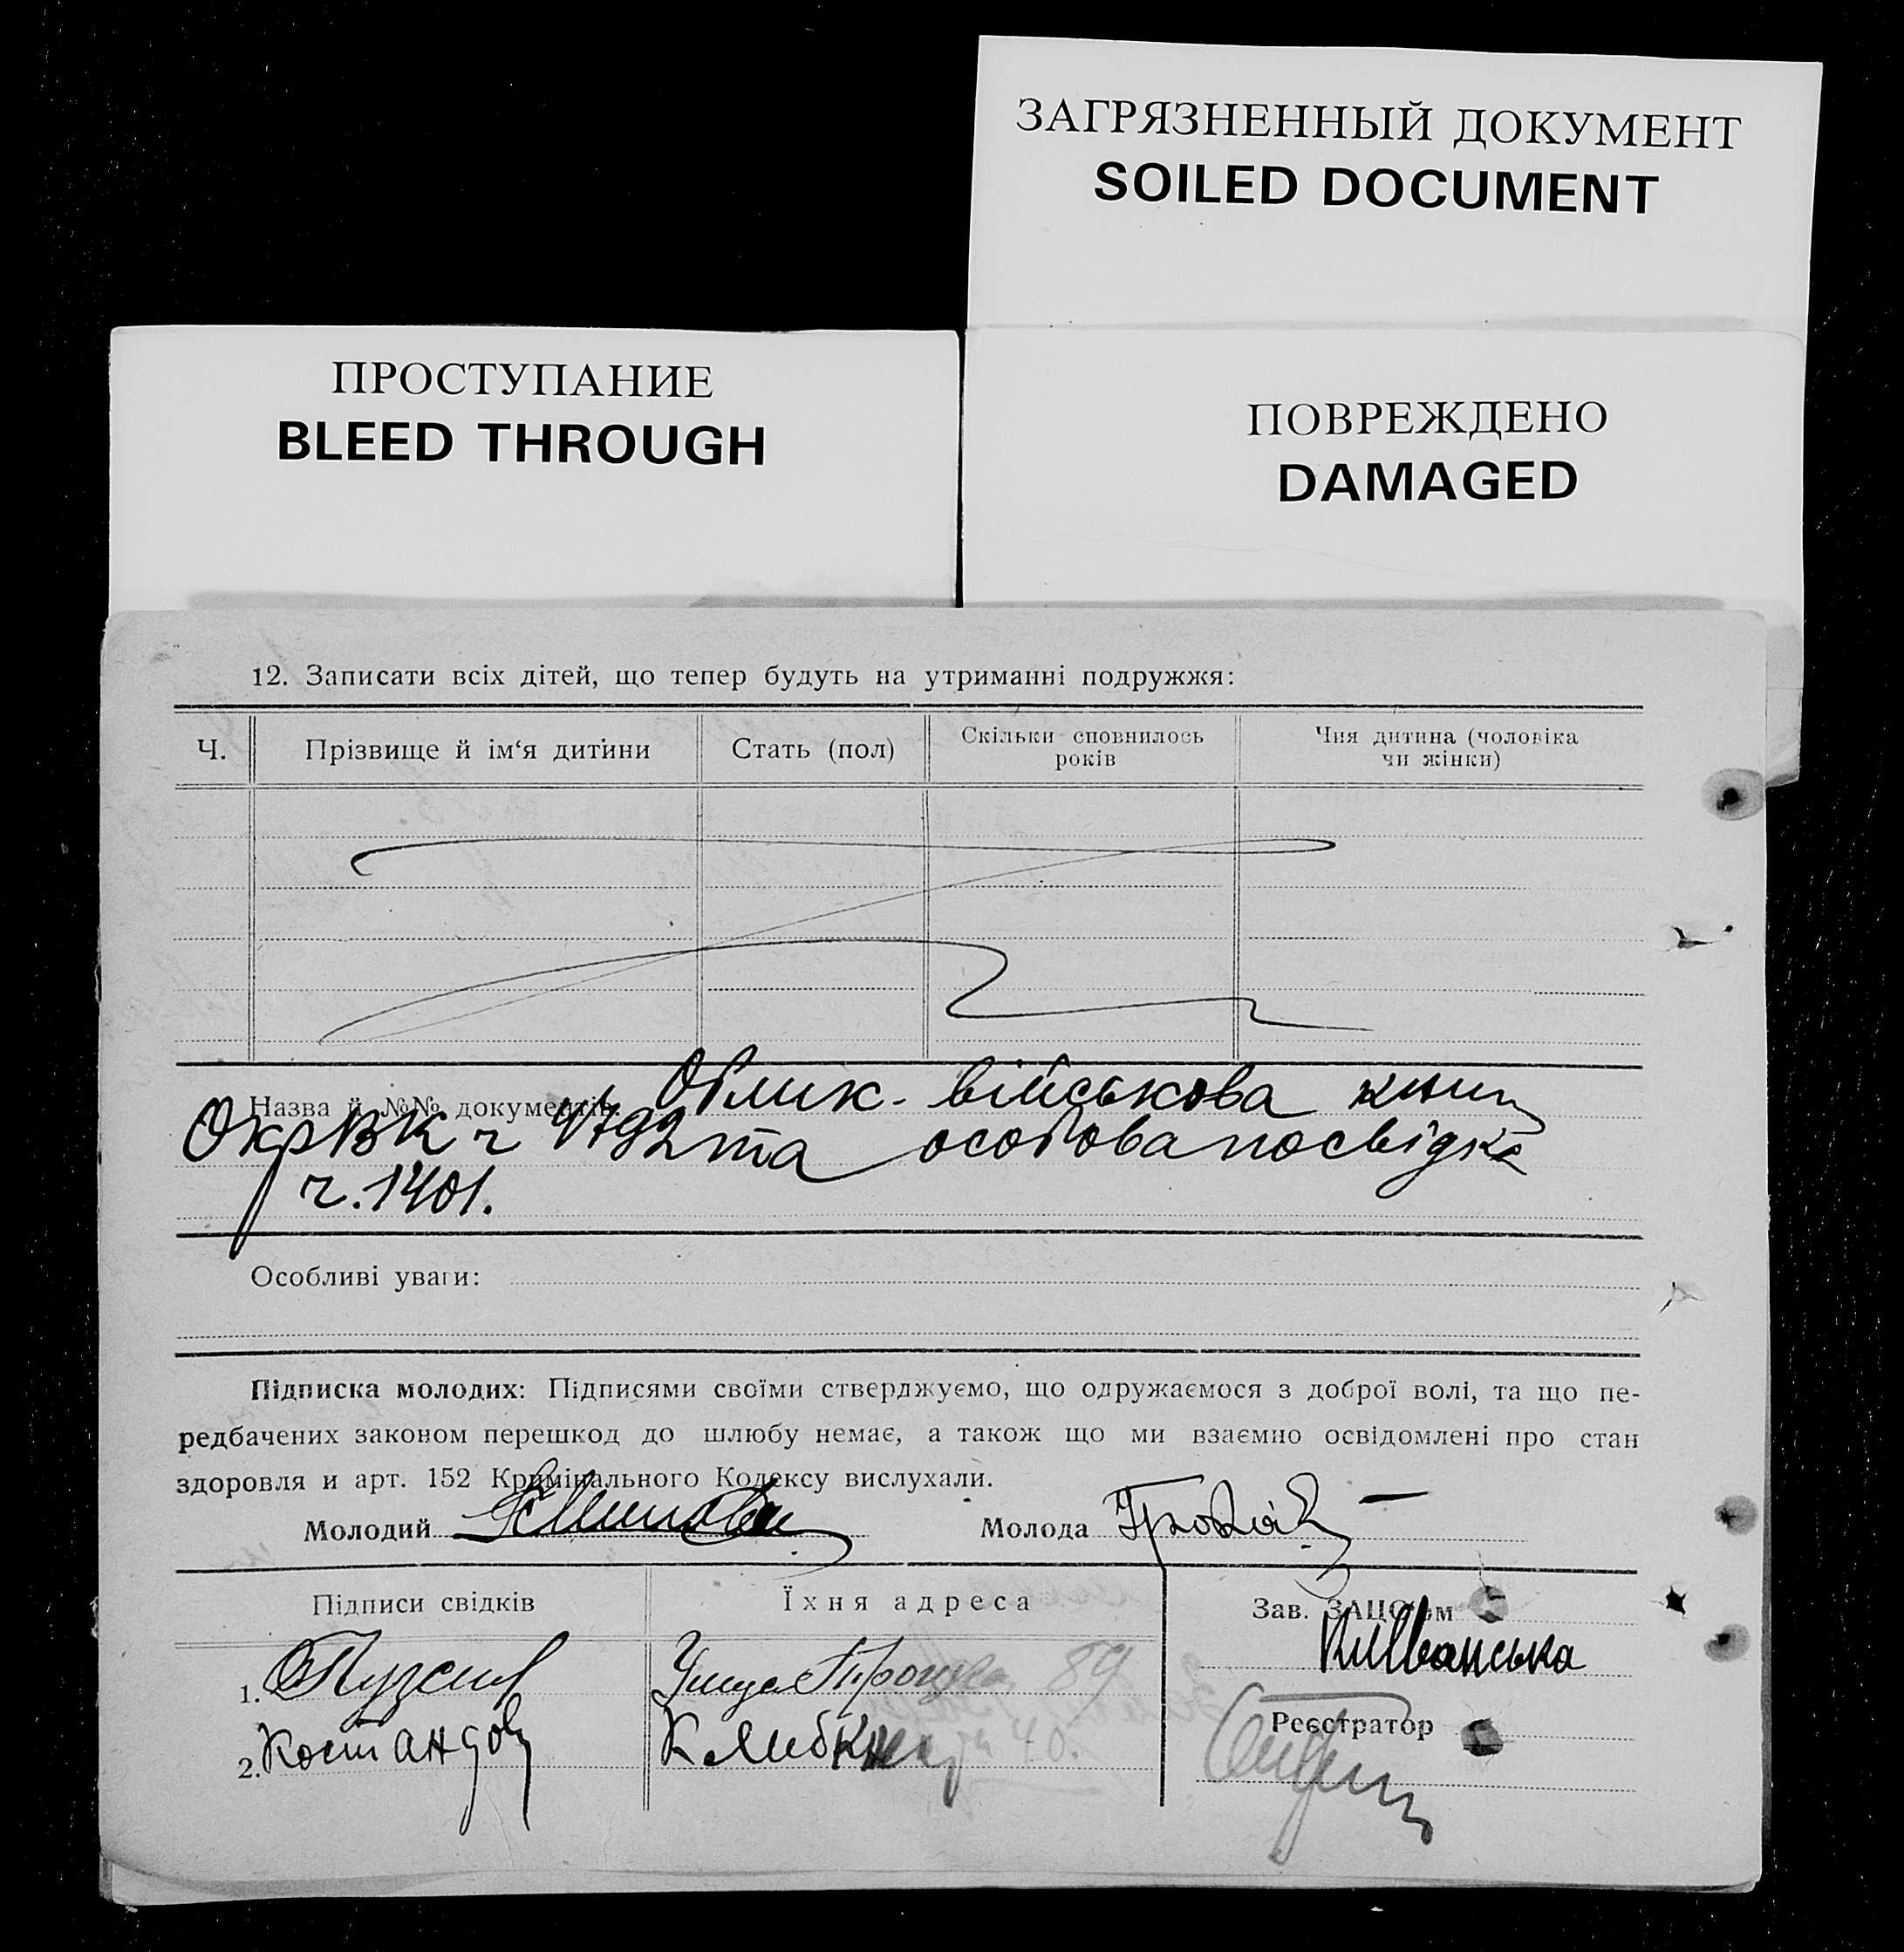 ЗАГРЯЗНЕННЫЙ ДОКУМЕНТ
SOILED DOCUMENT
ПРОСТУПАНИЕ
BLEED THROUGH
ПОВРЕЖДЕНО
DAMAGED
12. Записати всіх дітей, що тепер будуть на утриманні подружжя:
Ч.
Прізвище й ім‘я дитини
Стать (пол)
Скільки сповнилось
років
Чия дитина (чоловіка
чи жінки)
Назва й №№ документів: Облик. військова книж
ОкрВК ч 4792 та особова посвідка
ч. 1401.
Особливі уваги:
Підписка молодих: Підписями своїми стверджуємо, що одружаємося з доброї волі, та що пе-
редбачених законом перешкод до шлюбу немає, а також що ми взаємно освідомлені про стан
здоровля и арт. 152 Кримінального Кодексу вислухали.
Молодий
Молода
Підписи свідків
Їхня адреса
Зав. ЗАЦС'ом
1.
Улица 89
2. Костандов
К Либкнехта 40.
Реєстратор